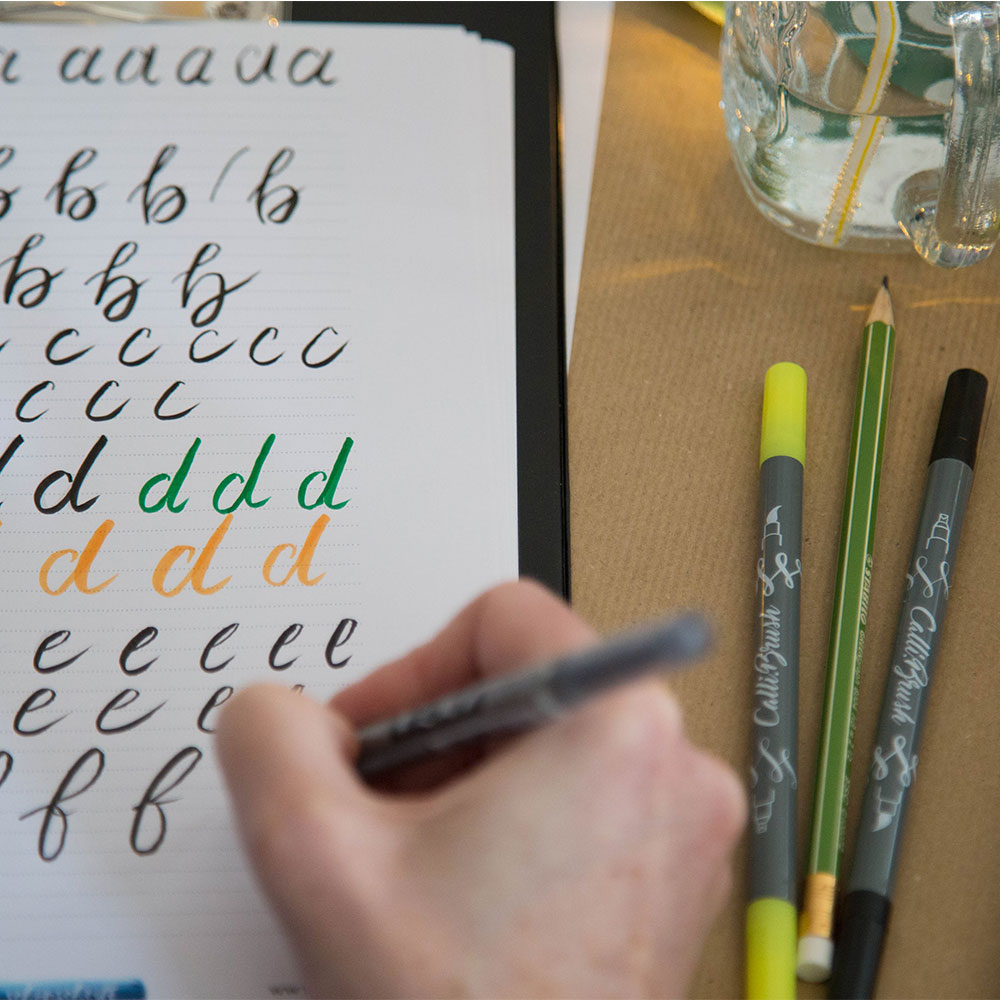 a a a a a a
b b b b
b b b
c c c c c
c c c
d d d d d
d d d
e e e e e
e e e
f f
CalliBrush
CalliBrush